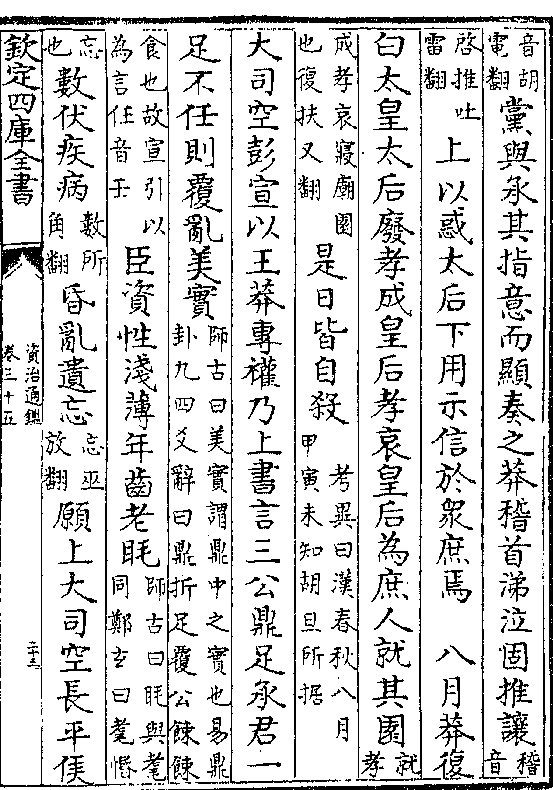 音胡
電翻
黨與承其指意而顯奏之莽稽首涕泣固推讓
稽音
啓推吐
雷翻
上以惑太后下用示信於衆庶焉 八月莽復
白太皇太后廢孝成皇后孝哀皇后為庶人就其園
就孝
成孝哀寢廟園
也復扶又翻
是日皆自殺
考異曰漢春秋八月
甲寅未知胡旦所据
大司空彭宣以王莽專權乃上書言三公鼎足承君一
足不任則覆亂美實
師古曰美實謂鼎中之實也易鼎
卦九四爻辭曰鼎折足覆公餗餗
食也故宣引以
為言任音壬
臣資性淺薄年齒老眊
師古曰眊與耄
同鄭玄曰耄惛
忘
也
數伏疾病
數所
角翻
昏亂遺忘
忘巫
放翻
願上大司空長平侯
欽定四庫全書
資治通鑑
卷三十五
二十三